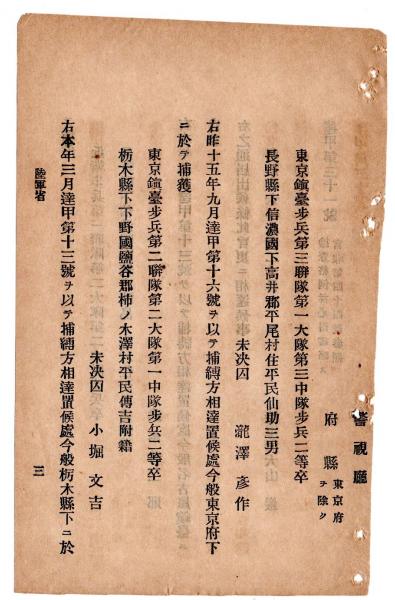 警視廳
府縣 東京府ヲ除ク
東京鎭臺步兵第三聯隊第一大隊第三中隊步兵二等卒
長野縣下信濃國下高井郡平尾村住平民仙助三男
未决囚 瀧澤彥作
右昨十五年九月達甲第十六號ヲ以テ捕縛方相達置候處今般東京府下
ニ於テ捕獲
東京鎭臺步兵第二聯隊第二大隊第一中隊步兵二等卒
栃木縣下下野國鹽谷郡柿ノ木澤村平民傳吉附籍
未决囚 小堀文吉
右本年三月達甲第十三號ヲ以テ捕縛方相達置候處今般栃木縣下ニ於
陸軍省
三